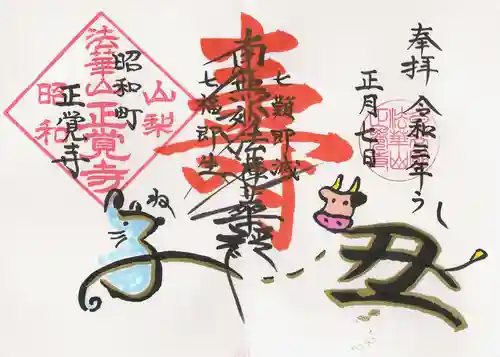 奉拝
令和三年うし
正月七日
寿
七難即滅
南無妙法蓮華経
七福即生
昭和町
正覚寺
山梨
法華山正覚寺
昭和
ね
子
丑